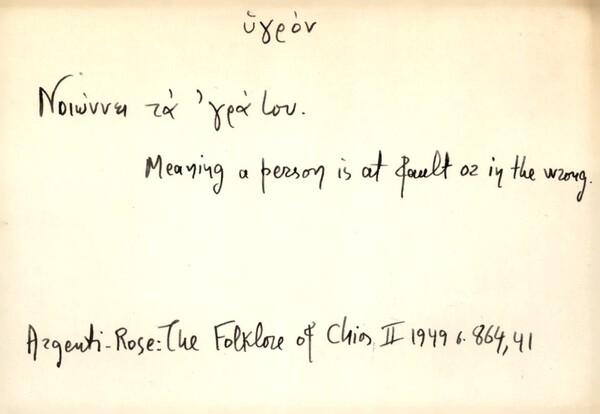 ὑγρόν
Νοιώννει τά ᾽γρά του.
Meaning a person is at fault or in the wrong.
Argenti-Rose: The Folklore of Chios II 1949 σ. 864,41